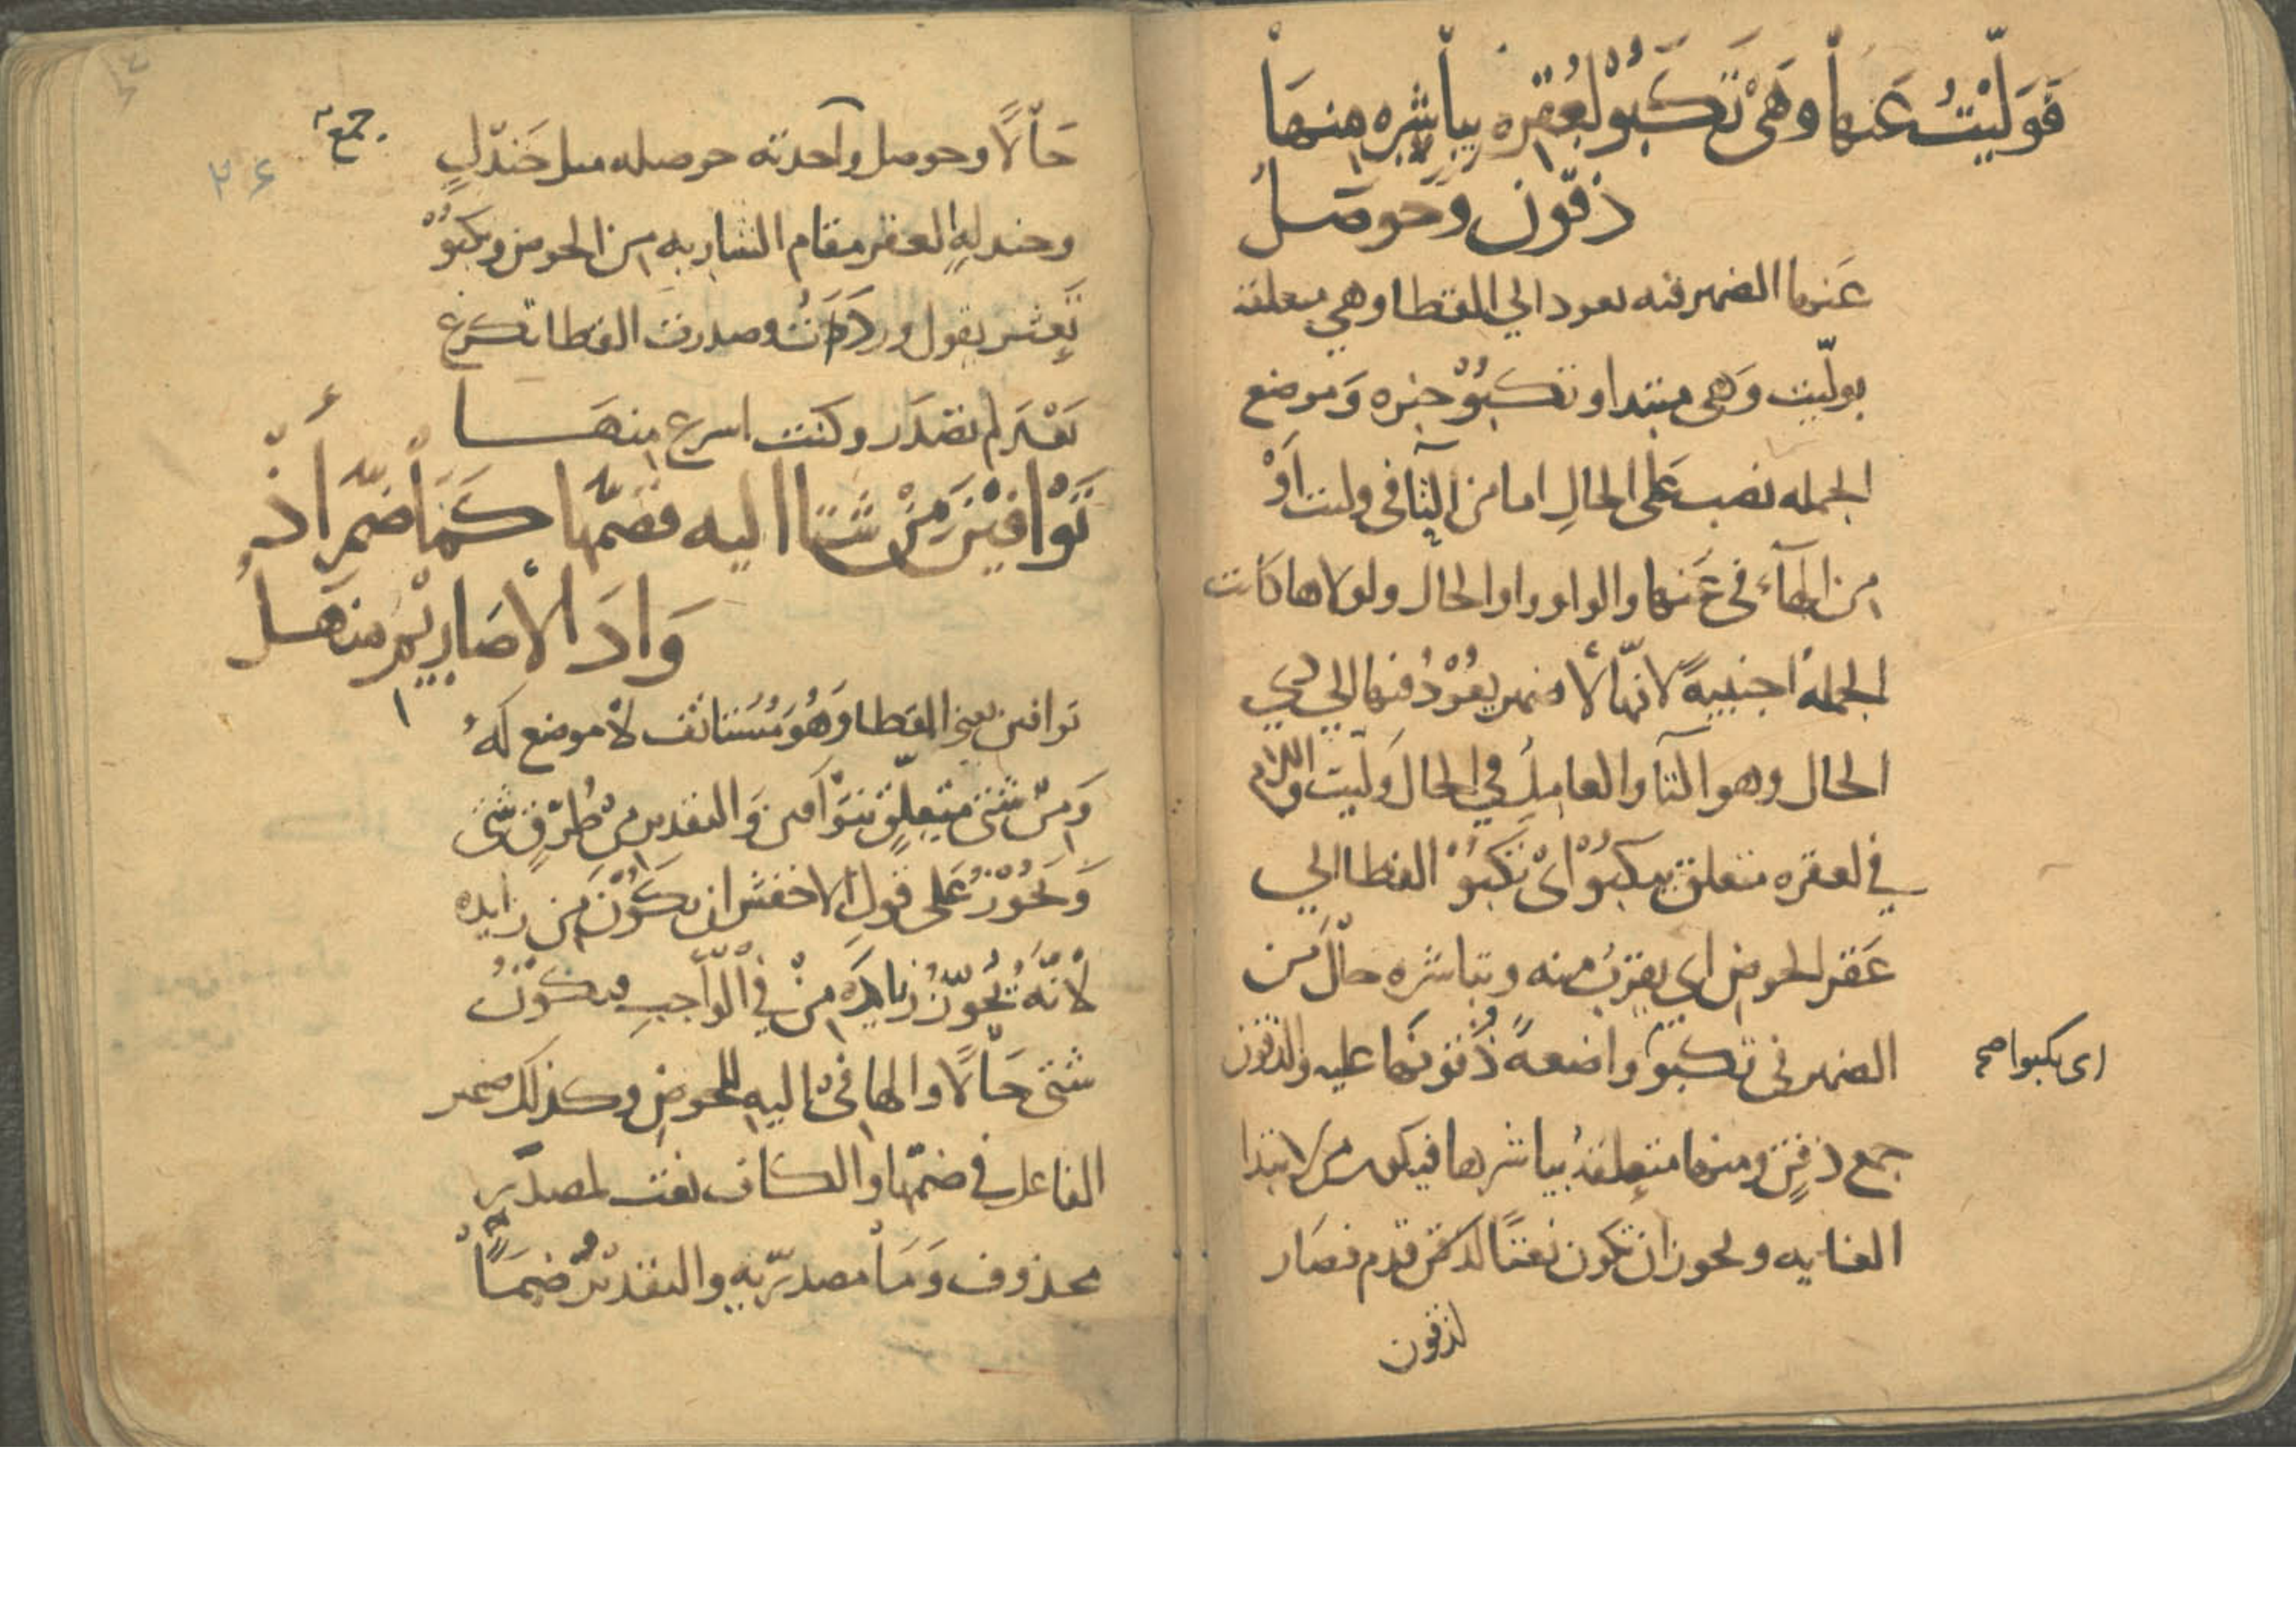 فَوَلَّيْتُ عَنها وَهْيَ تَكْبُوْ لِعُقْرِه يباشره منها
ذقون وحَوصَلُ
عَنها الضمير فيه يعود الي القطا وهي متعلقة
بولّيت وَهي مبتدا وتكبُوْ خبره وَموضع
الجمله نصب عَلى الحالِ اما من التآ في وليت اَوْ
من الهآء في عَنها والواو واو الحال ولولاها كانت
الجملة اجنبيةً لانّها لا ضمير يعُوْدُ فيها الي ذي
الحال وهو التآ والعامِلُ في الحال وَلّيت واللام
في لعقره متعلق بيكبُوْ اىْ تَكبُوْ القطا الي
عَقر الحوض اي يقربُ منه ويباشره حالٌ من
الضمير في تكبوَ واضعةً ذُقونها عليه والذقون
اى يكبوا صح
جمع ذقنٍ ومنها متعلقةُ بيباشرها فيكون من لابتدا
الغايه ولحوز ان تكون نعتًا لذقن قدم فصَار
لذقون
حَالًا وحوصل وآحدته حوصله مثل حَندَلٍ
جمع
۲۶
وحندلهٍ العقر مقام الشاربه من الحوض ويكبُوْ
يَعثر يقول وردَدَتُ وصدرت القطا تكرع
بَعْدَ لم تصْدَر وكنت اسرع منهَا
تَوَافَيْنَ مِنْ شتا اليه فضمّها كَمَا ضمَّ أَذْ
وَادَ الأصَارِيْمِ منهَلُ
توافين يعني القطا وَهُوَ مُسْتانف لا موضع لَهُ
وَمن شتى متعلِّق بتوَافين وَالتقدير من طُرُقٍ شتى
وَيَحُوْزُ عَلى قول الاخفش ان تكُوْنَ مِن زايده
لانَّهُ يُجَوِّزُ زيادَه مِنْ في الوَاجبِ فيكونُ
شتى حَالًا والها في اليه للحوض وكذلك ضمير
الفاعل في ضمّها والكاف نعت لمصدَرٍ
محذوف وَمَا مصدرّيه والتقديْرُ ضمًّا